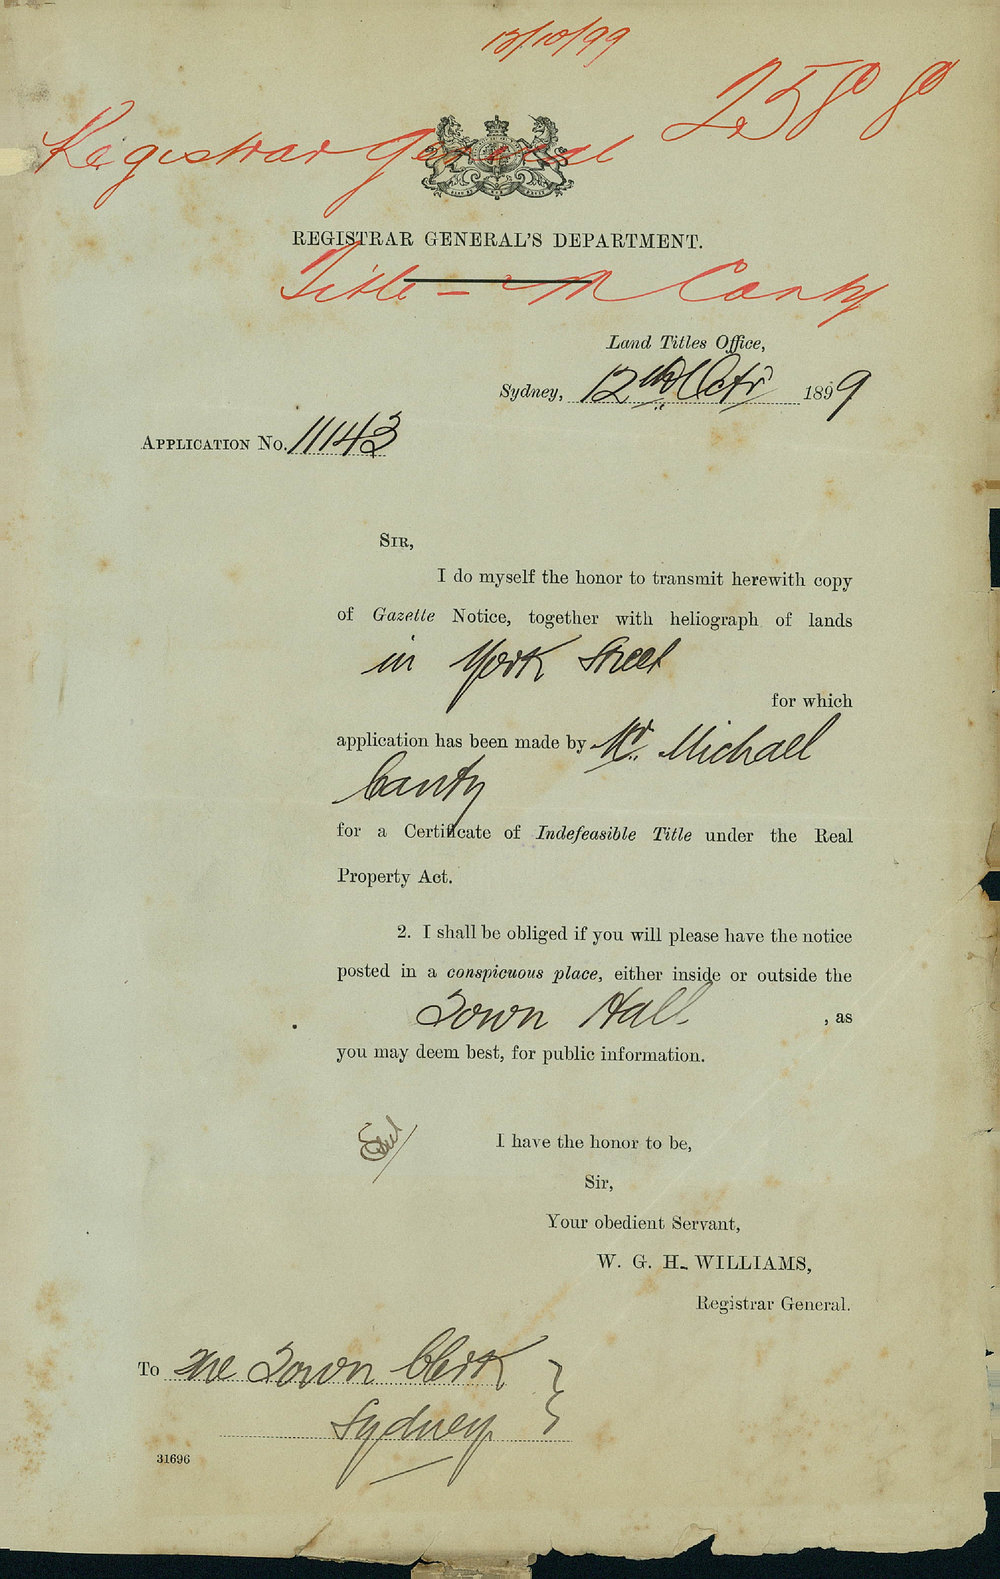 12/10/99
2588
Registrar General
REGISTRAR GENERAL'S DEPARTMENT.
Title - M Canty
Land Titles Office,
Sydney, 12th Octr 1899
APPLICATION No. 11143
SIR,
I do myself the honor to transmit herewith copy
of Gazette Notice, together with heliograph of lands
in York Street
for which
application has been made by Mr. Michael
Canty
for a Certificate of Indefeasible Title under the Real
Property Act.
2. I shall be obliged if you will please have the notice
posted in a conspicuous place, either inside or outside the
Town Hall , as
you may deem best, for public information.
I have the honor to be,
Sir,
Your obedient Servant,
W. G. H. WILLIAMS,
Registrar General.
To The Town Clerk
Sydney
31696